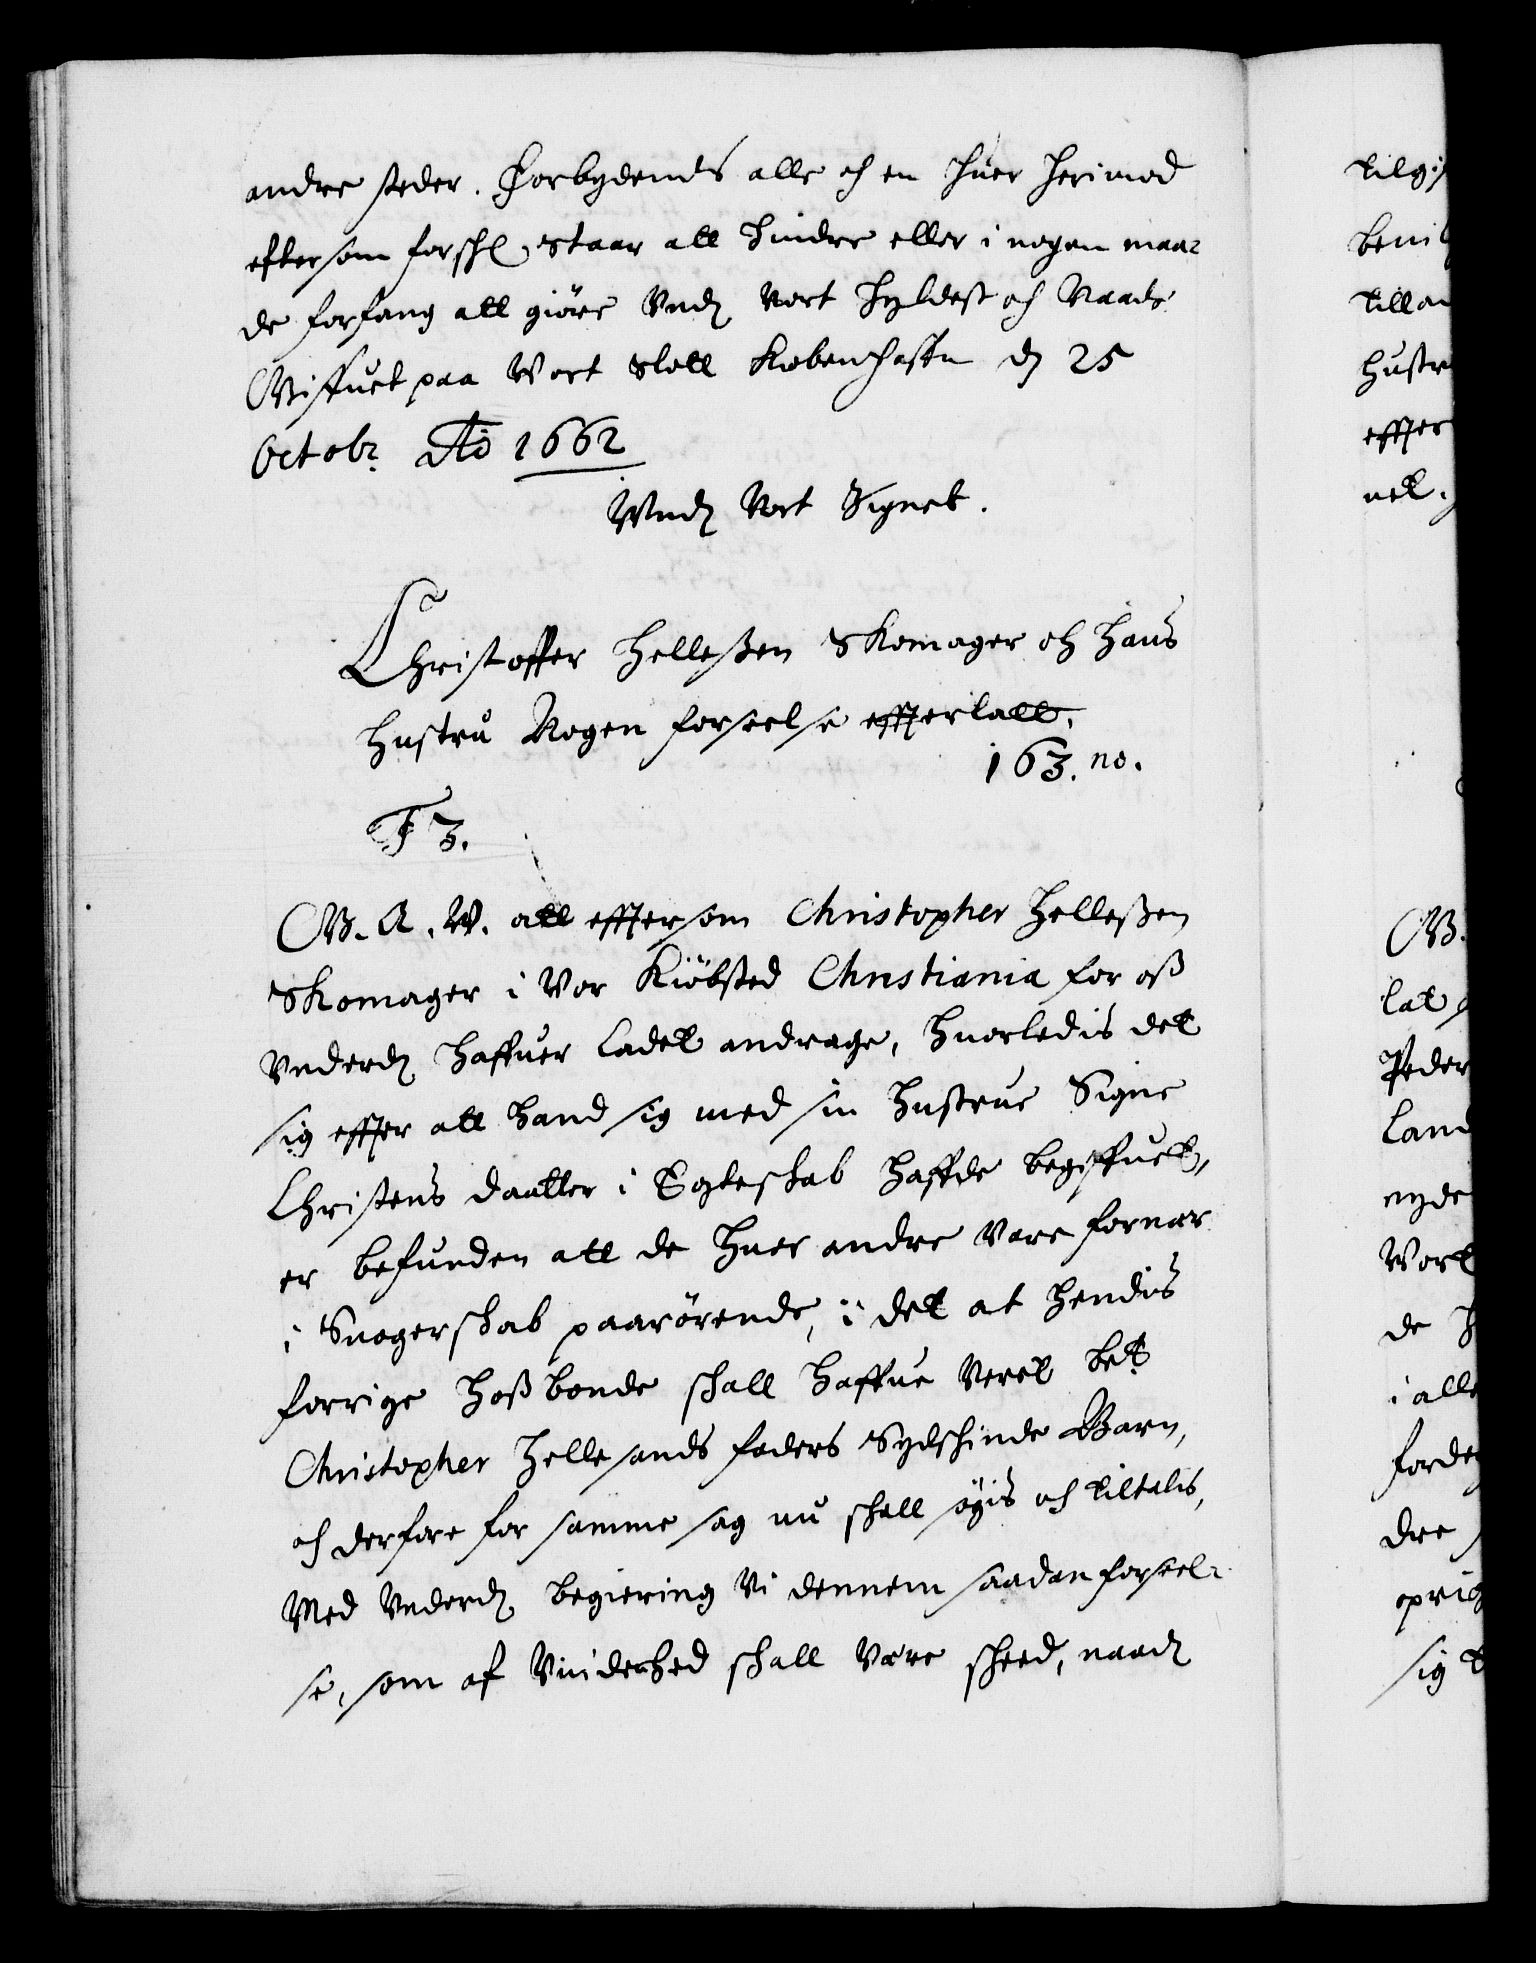 andre steder. Forbydends alle och en huer herimod
eftersom forsch. staar att hindre eller i nogen maa-
de forfang att giöre Vnd. Vort Hyldest och Naade
Giffuet paa Wort Slott Kiøbenhaffn d. 25
Octobr. Ao 1662
Wnd. Vort Signet.
Christoffer Helleßen Skomager och hans
Hustru Nogen forseelse effterlatt.
163. no.
F 3.
G. A. W. att effter som Christopher Helleßen
Skomager i Vor Kiöbsted Christiania for oß
Vnderd. haffuer ladet andrage, huorledis det
sig effter att hand sig med sin Hustrue Signe
Christens daatter i Egteskab haffde begiffuet,
er befunden att de huer andre Vare fornær
i Suogerskab paarörende, i det at hendis
forrige Hoßbonde schall haffue Veret bet
Christopher Hellesøns faders Sydschinde Barn,
och derfore for samme sag nu schall søgis och tiltalis,
Med Vnderd. begiering Vi dennem saadan forseel-
se, som af Vuidenhed schall Være scheed, naad.
tilgi
hustr
effter
G.
lat
Peder
Land
nyde
Wort
de
i alle
dre
oprig
sig